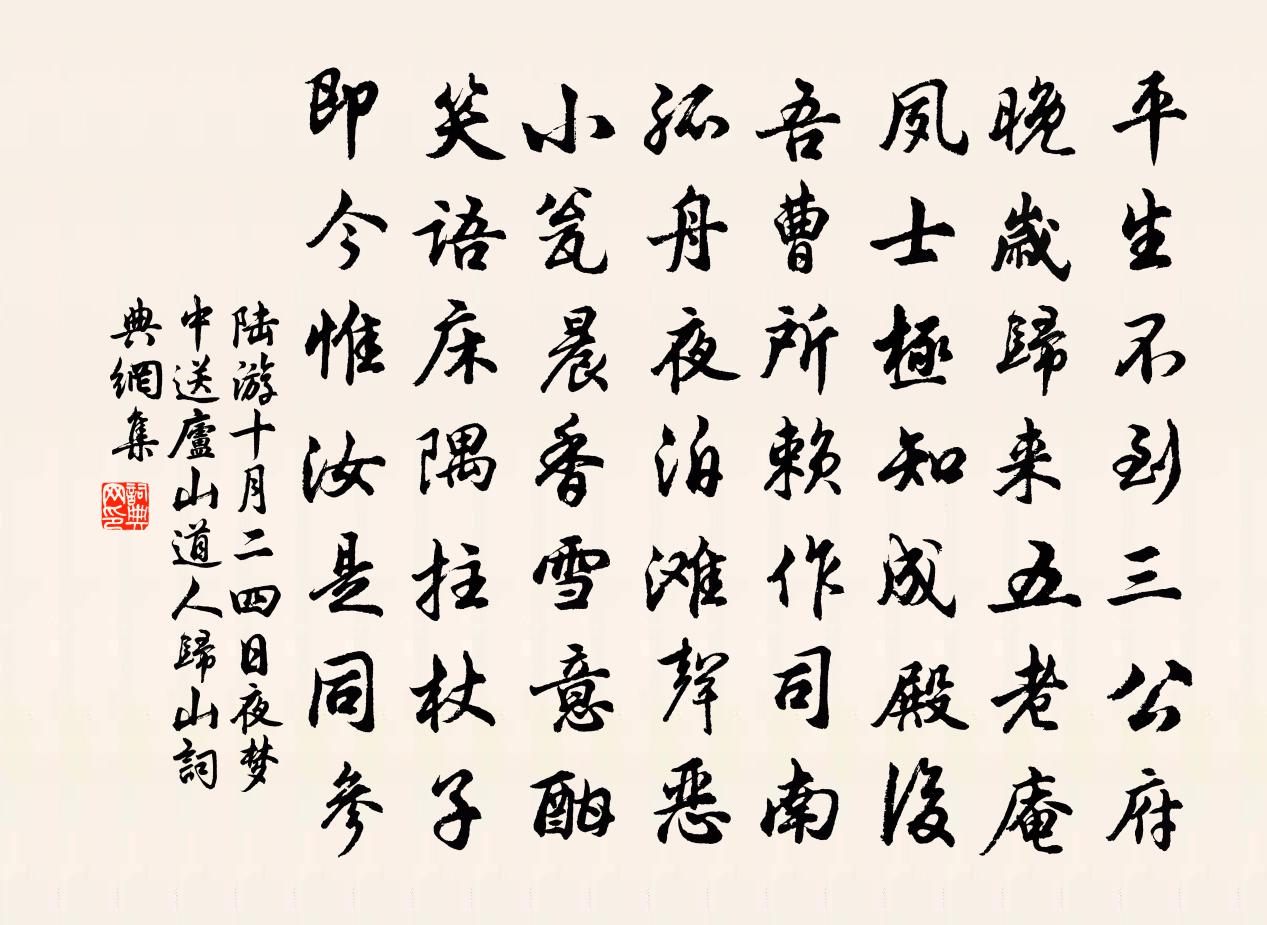 平生不到三公府
晚歲歸来五老庵
夙士極知成殿後
吾曹所赖作司南
孤舟夜泊滩聲惡
小瓮晨香雪意酣
笑語床隅拄杖子
即今惟汝是同參
陆游十月二四日夜梦
中送廬山道人歸山詞
典網集
詞典网印